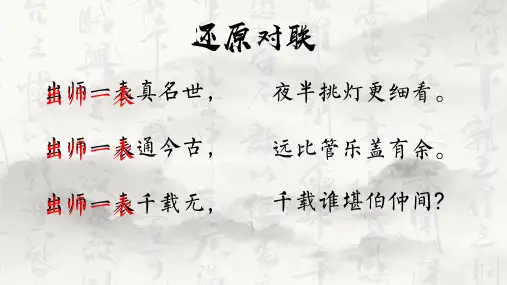 还原对联
出师一表真名世， 夜半挑灯更细看。
出师一表通今古， 远比管乐盖有余。
出师一表千载无， 千载谁堪伯仲间？